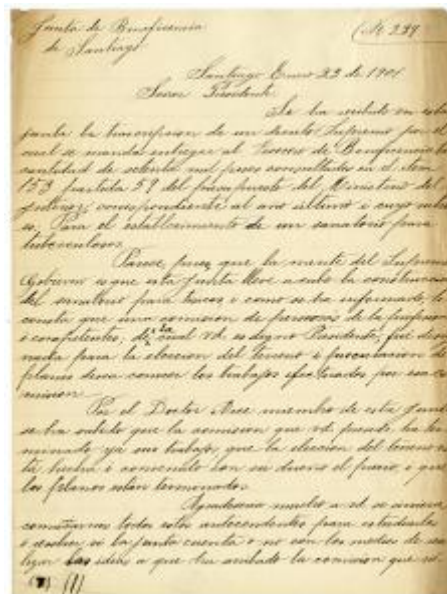 Junta de Beneficencia
de Santiago
(N 239
Santiago Enero 23 de 1901
Señor Presidente
Se ha recibido en esta
junta la transcripcion de un decreto Supremo por el
cual se manda entregar al Tesorero de Beneficencia la
cantidad de ochenta mil pesos consultados en el item
153 partida 59 del presupuesto del Ministerio del
Interior, correspondiente al año último i cuyo
es, Para el establecimiento de un sanatorio para
tuberculosos.
Parece, pues, que la mente del Supremo
Gobierno es que esta Junta lleve a cabo la construccion
del sanatorio para i como se ha informado
consta que una comision de personas de la
i competentes, de la cual vd. es digno Presidente, fué
nada para la eleccion del terreno i preparacion de
planos desea conocer los trabajos efectuados por esa co
mision.
Por el Doctor miembro de esta Junta
se ha sabido que la comision que vd. preside ha ter
minado ya sus trabajos, que la eleccion del terreno es
ta hecha i convenido con su dueno el precio, i que
los planos estan terminados.
Agradeceria mucho a vd. se sirviera
comunicar todos estos antecedentes para estudiarlos
i resolver si la junta cuenta o no con los medios de rea
lizar las ideas a que ha arribado la comision que vd.
(1)